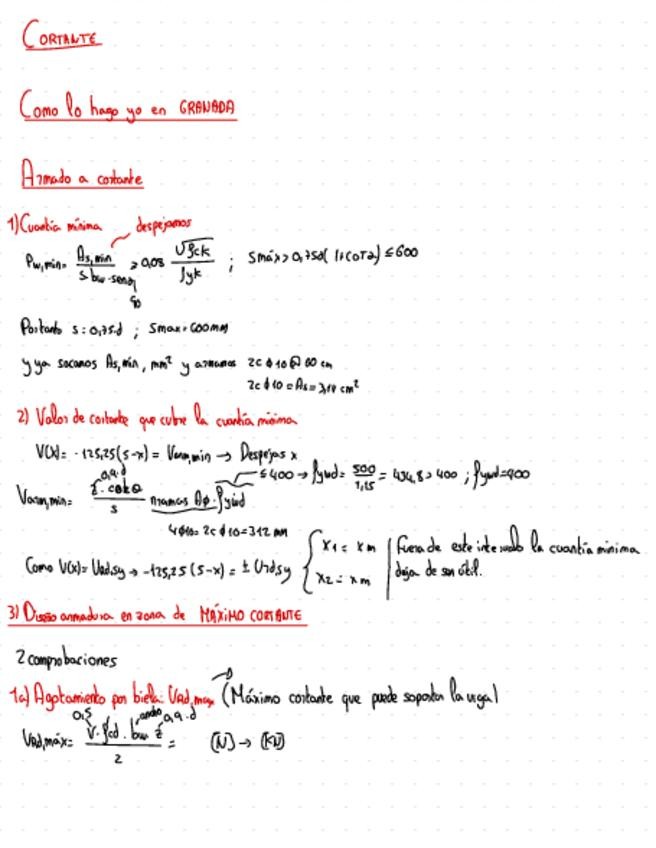 CORTANTE
Como lo hago yo en GRANADA
Armado a cortante
1) Cuantía mínima despejamos
Pw,min = As,min / s·bw·senα ≥ 0,08 √fck / fyk ; Smáx > 0,75d(1+cotα) ≤ 600
90
Por tanto s = 0,75·d ; Smax = 600mm
y ya sacamos As,min, mm² y armamos 2c ϕ 10 @ 60 cm
2c ϕ 10 = As = 3,14 cm²
2) Valor de cortante que cubre la cuantía mínima
V(x) = -125,25(5-x) = Varm,min → Despejas x
0,9·d ≤ 400 → fywd = 500/1,15 = 434,8 > 400 ; fywd = 400
Varm,min = z·cotθ / s nramas Aϕ · fywd
4ϕ10 = 2c ϕ 10 = 312 mm
Como V(x) = VRd,sy → -125,25(5-x) = ± Vrd,sy { x1 = x m x2 = x m | Fuera de este intervalo la cuantía mínima deja de ser útil.
3) Diseño armadura en zona de MÁXIMO CORTANTE
2 comprobaciones
1a) Agotamiento por biela: VRd,max (Máximo cortante que puede soportar la viga)
0,5 ancho 0,9·d
VRd,máx = v·fcd·bw z / 2 = (N) → (KN)